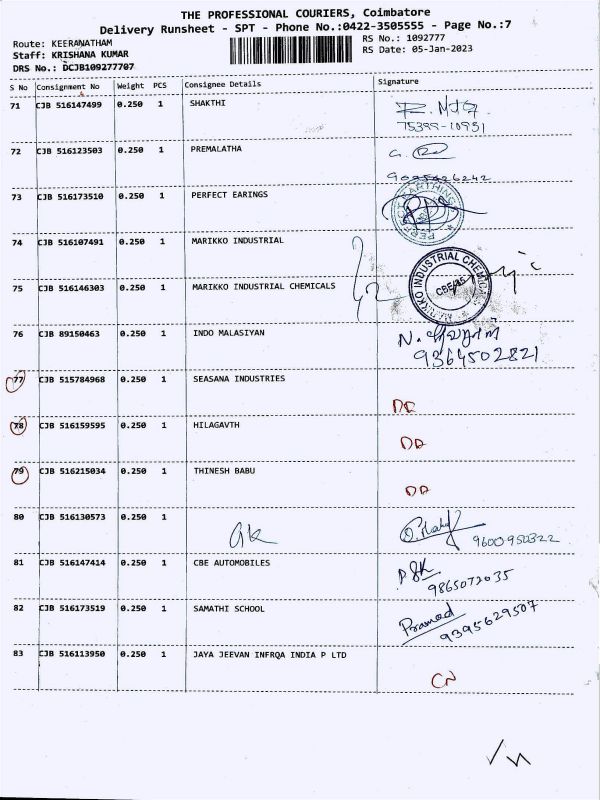 THE PROFESSIONAL COURIERS, Coimbatore
Delivery Runsheet - SPT - Phone No.:0422-3505555 - Page No.:7
Route: KEERANATHAM
RS No.: 1092777
Staff: KRISHANA KUMAR
RS Date: 05-Jan-2023
DRS No.: DCJB109277707
S No Consignment No Weight PCS Consignee Details Signature
71 CJB 516147499 0.250 1 SHAKTHI
75399-10951
72 CJB 516123503 0.250 1 PREMALATHA
73 CJB 516173510 0.250 1 PERFECT EARINGS
74 CJB 516107491 0.250 1 MARIKKO INDUSTRIAL
75 CJB 516146303 0.250 1 MARIKKO INDUSTRIAL CHEMICALS
MARIKKO INDUSTRIAL CHEMICALS
76 CJB 89150463 0.250 1 INDO MALASIYAN
9364502821
77 CJB 515784968 0.250 1 SEASANA INDUSTRIES
78 CJB 516159595 0.250 1 HILAGAVTH
79 CJB 516215034 0.250 1 THINESH BABU
80 CJB 516130573 0.250 1
9600950322
81 CJB 516147414 0.250 1 CBE AUTOMOBILES
9865072035
82 CJB 516173519 0.250 1 SAMATHI SCHOOL
Pramod
9395629507
83 CJB 516113950 0.250 1 JAYA JEEVAN INFRQA INDIA P LTD
CN